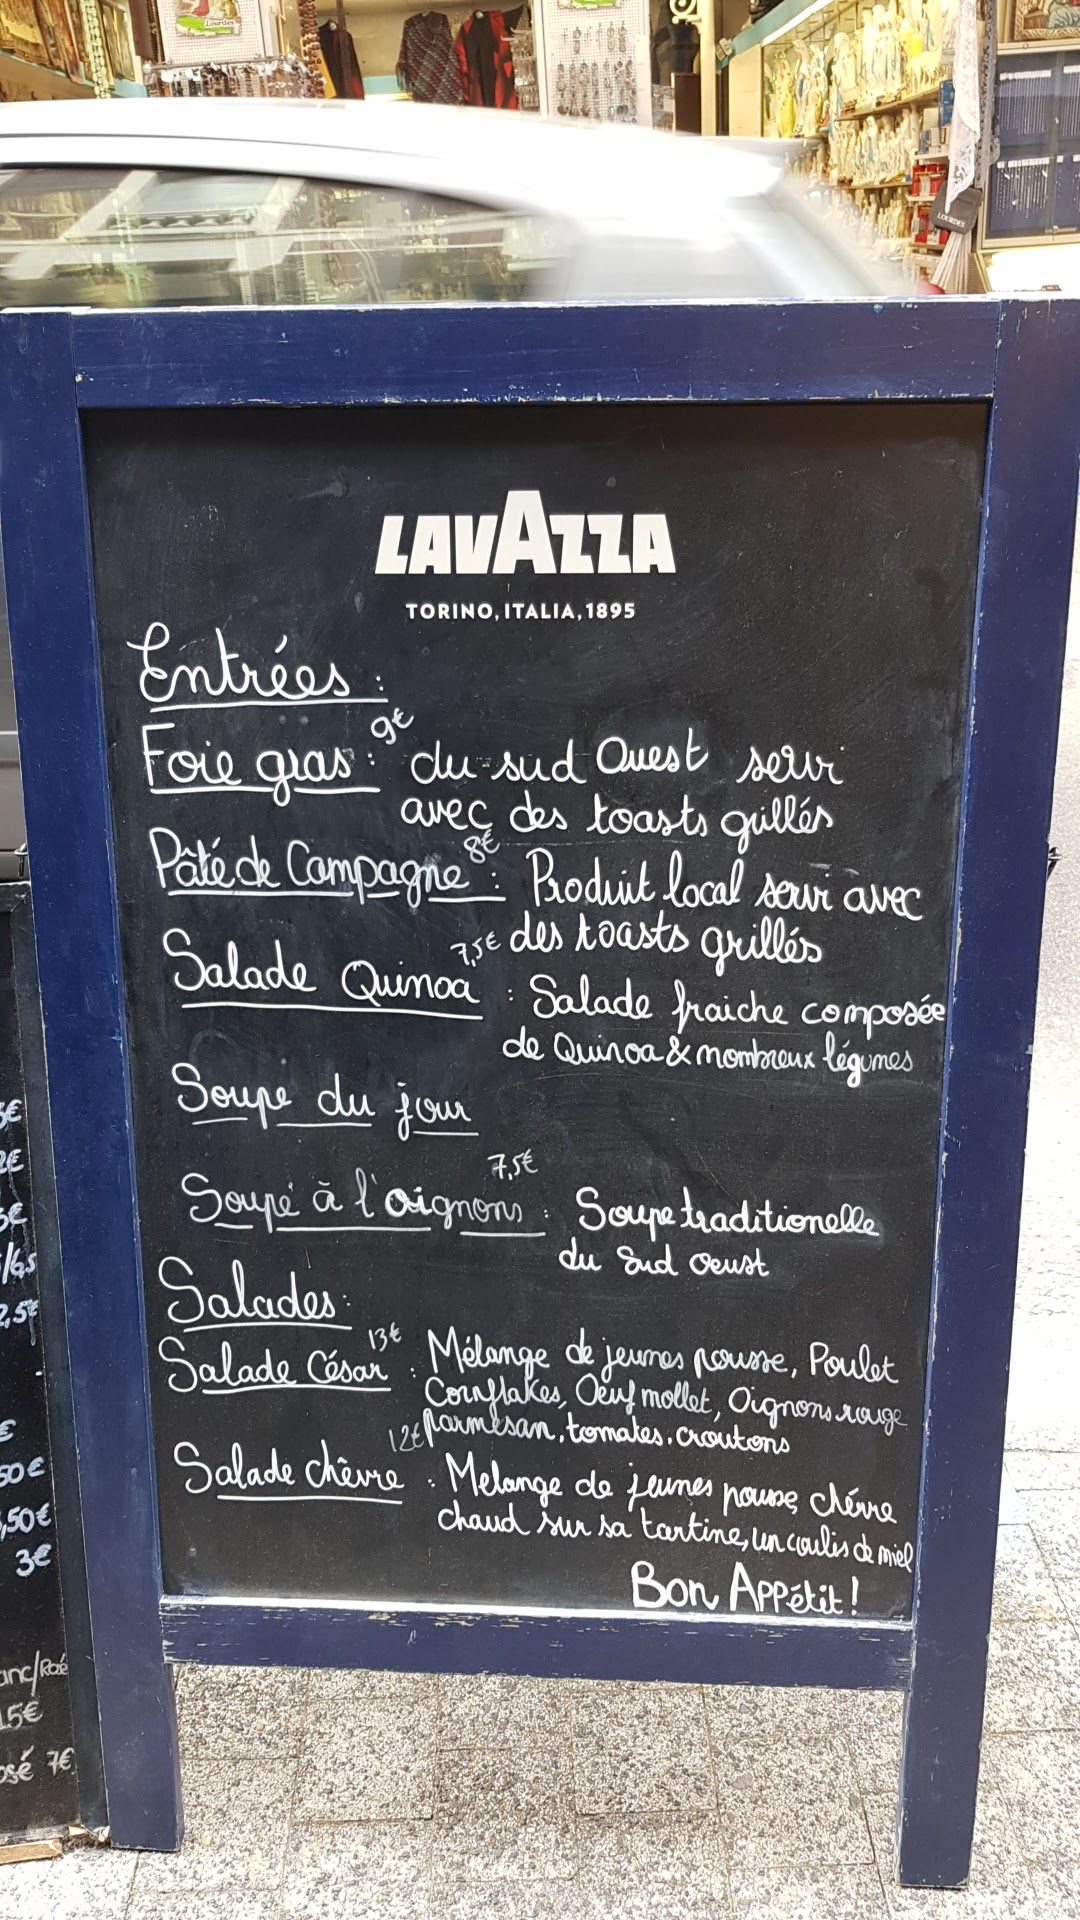 Lourdes
LOURDES
LAVAZZA
TORINO, ITALIA, 1895
Entrées :
Foie gras : 9€ du sud Ouest servi
avec des toasts grillés
Pâté de Campagne 8€ : Produit local servi avec
des toasts grillés
Salade Quinoa 7,5€ : Salade fraiche composée
de Quinoa & nombreux légumes
Soupe du jour
Soupe à l'oignons 7,5€ : Soupe traditionelle
du Sud oeust
Salades :
Salade César 13€ : Mélange de jeunes pousse, Poulet
Cornflakes, Oeuf mollet, Oignons rouge
parmesan, tomates. croutons
Salade chêvre 12€ : Melange de jeunes pousse, chévre
chaud sur sa tartine, un coulis de miel
Bon Appétit !
5€
2€
5€
/6,5
2,5€
€
50€
,50€
3€
anc/Rosé
15€
osé 7€